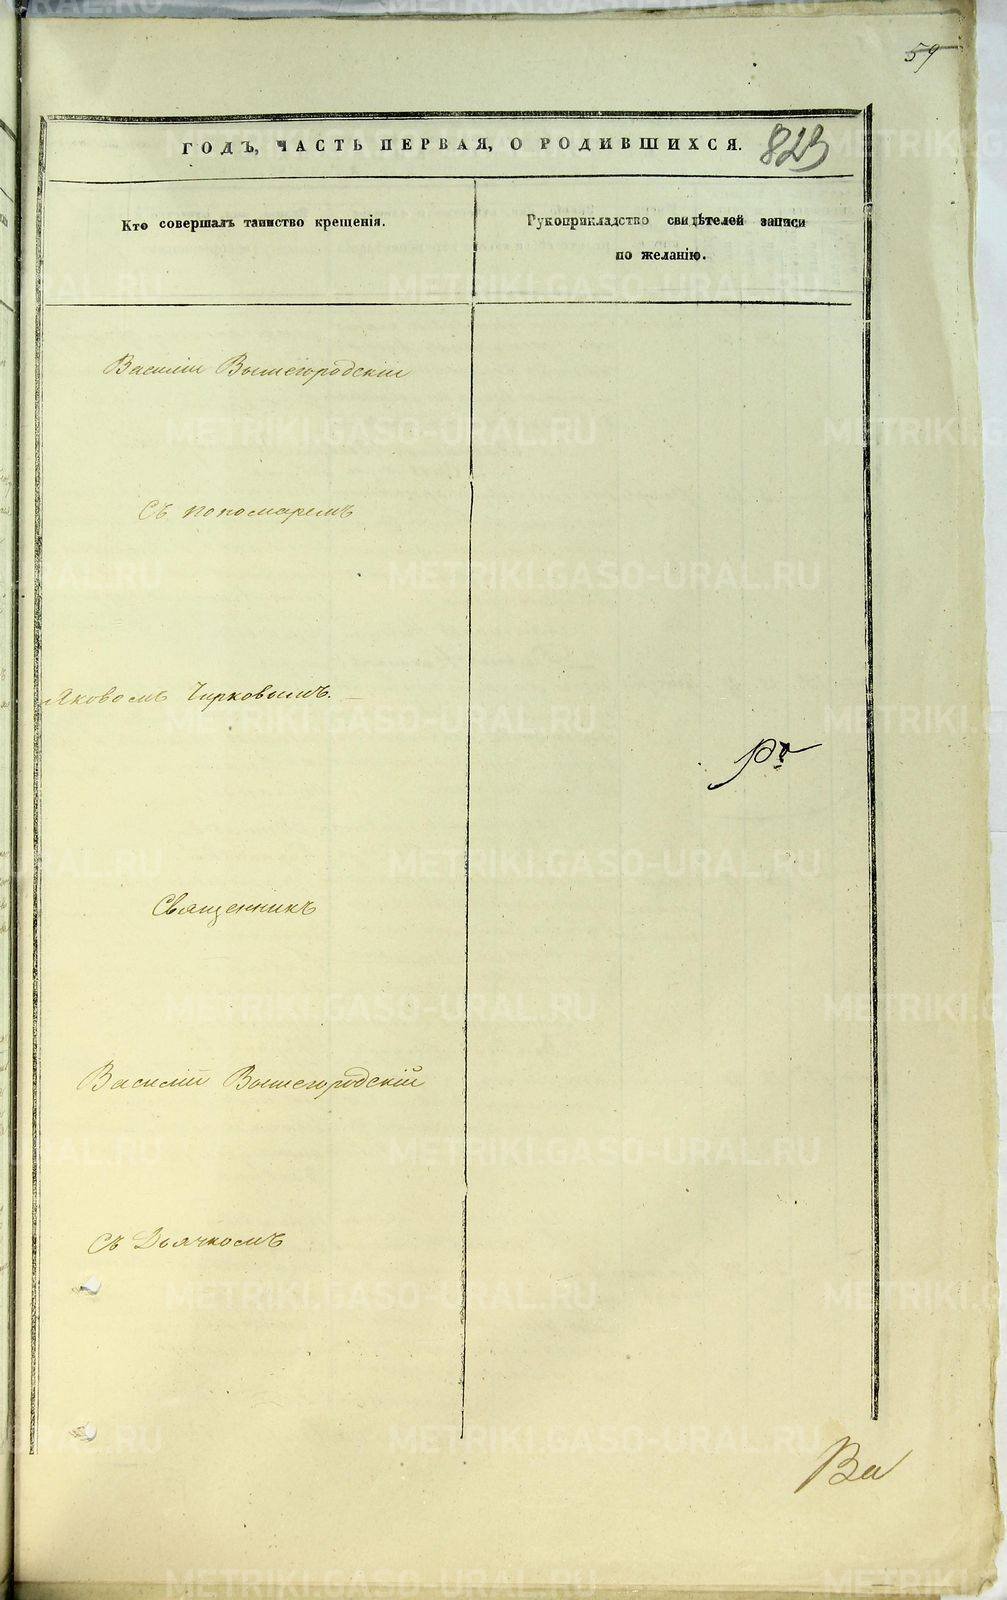 59
ГОДЪ, ЧАСТЬ ПЕРВАЯ, О РОДИВШИХСЯ. 823
Кто совершалъ таинство крещенія.
Рукоприкладство свидѣтелей записи
по желанію.
Василій Вышегородскій
Съ пономаремъ
Яковомъ Чирковымъ.
Священникъ
Василій Вышегородскій
Съ Дьячкомъ
Ва
METRIKI.GASO-URAL.RU